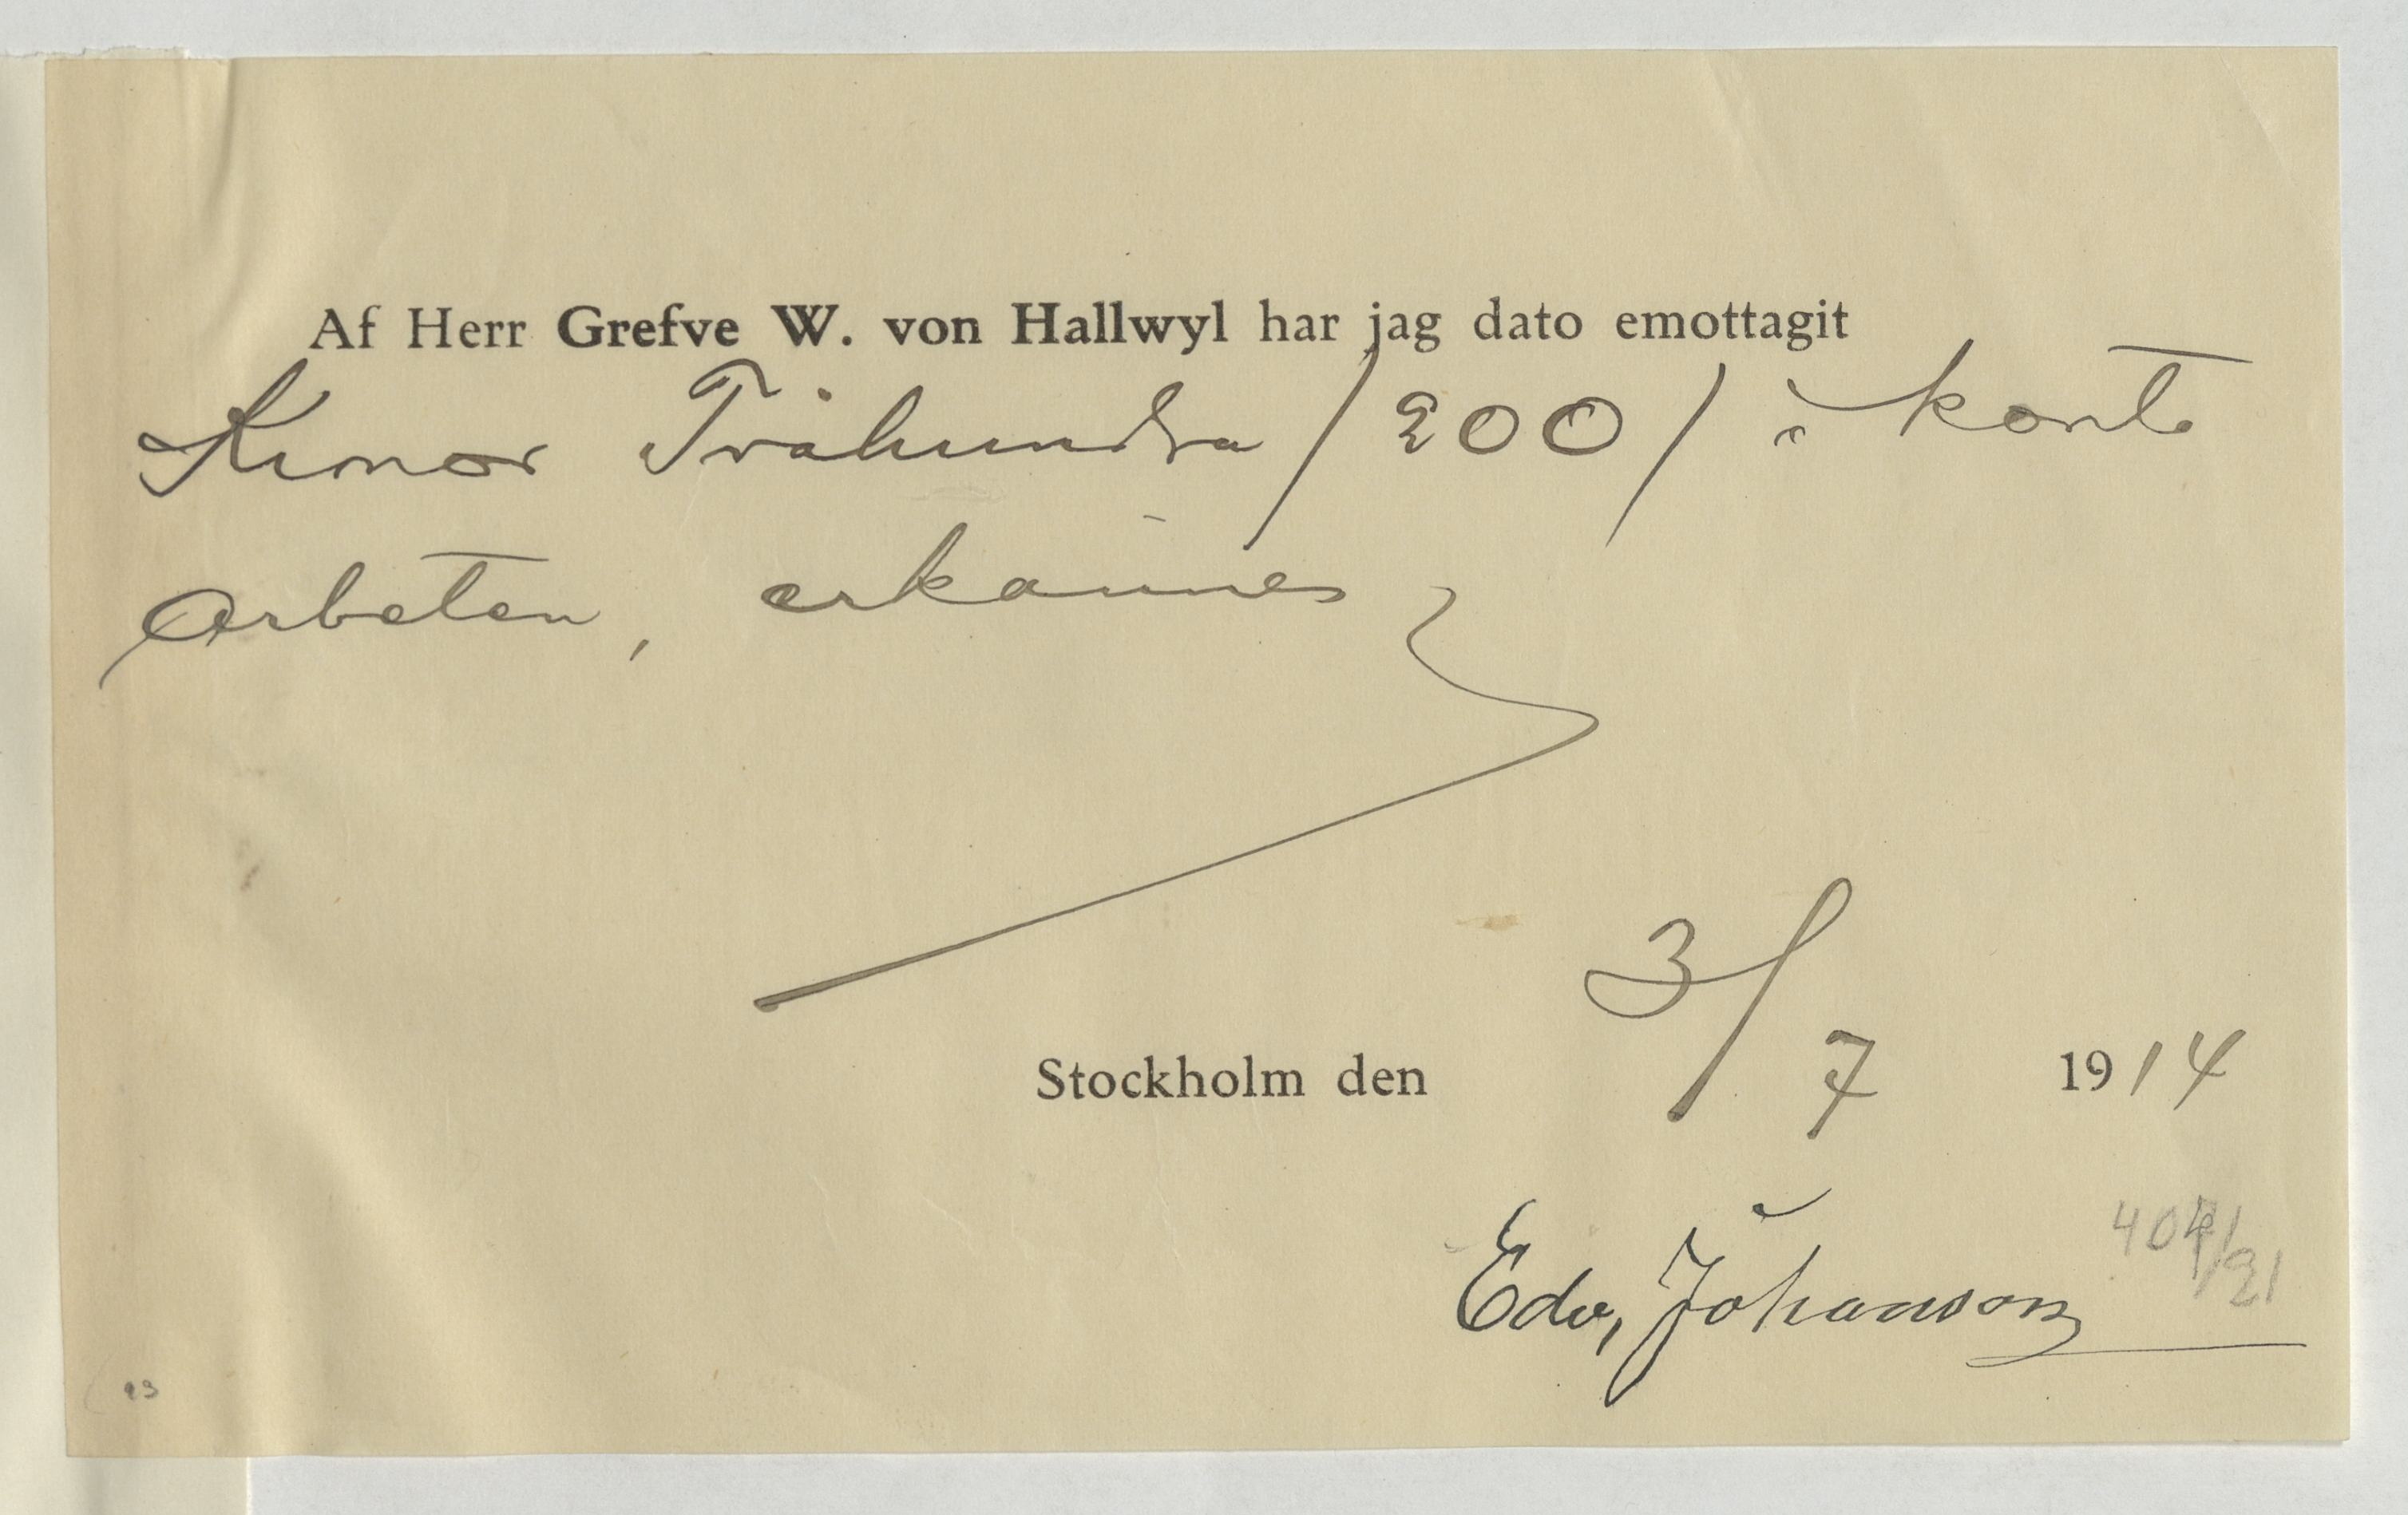 Af Herr Grefve W. von Hallwyl har jag dato emottagit
Kronor Tvåhundra /200/ à konto
Arbeten, erkännes
Stockholm den 3/7 1914
Edv, Johanson
23